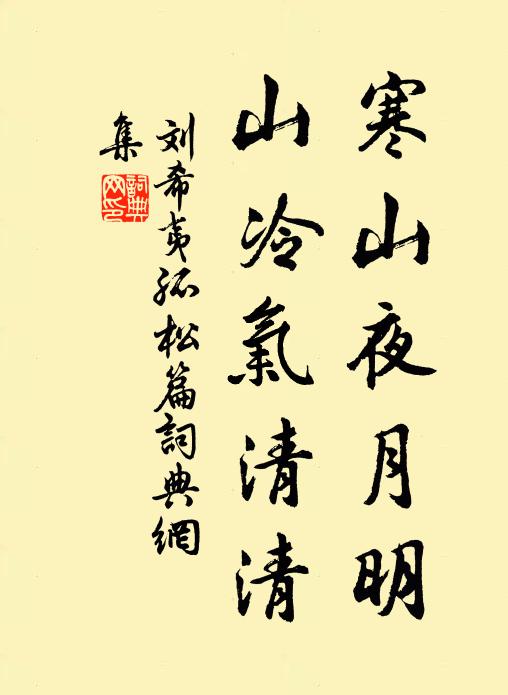 寒山夜月明
山冷氣清清
刘希夷孤松篇詞典網
集
詞典
网印